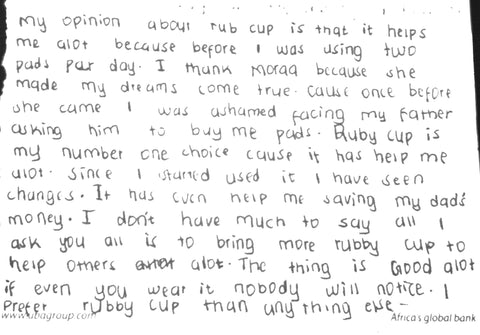 my opinion about rub cup is that it helps
me alot because before I was using two
pads par day. I thank Moraa because she
made my dreams come true. Cause once before
she came I was ashamed facing my father
asking him to buy me pads. Ruby cup is
my number one choice cause it has help me
alot. Since I started used it I have seen
changes. It has even help me saving my dad's
money. I don't have much to say all I
ask you all is to bring more rubby cup to
help others alot. The thing is Good alot
if even you wear it nobody will notice. I
Prefer rubby cup than any thing else-
www.ubagroup.com Africa's global bank